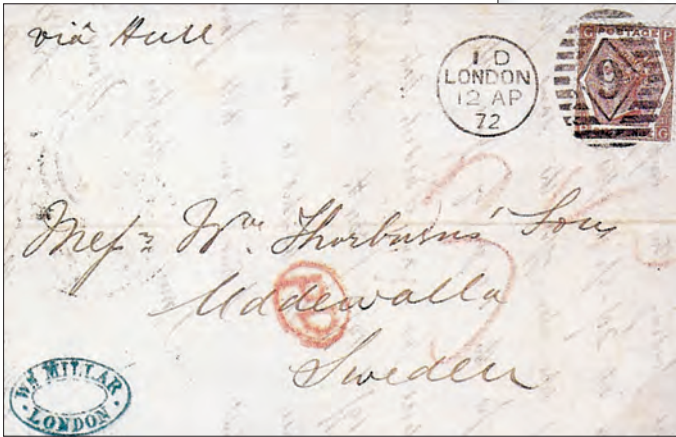 viâ Hull
1 D
LONDON
12 AP
72
G POSTAGE P
9
P G
Messrs Wm. Thorburns' Son
Uddewalla
Sweden
Wm MILLAR
· LONDON ·